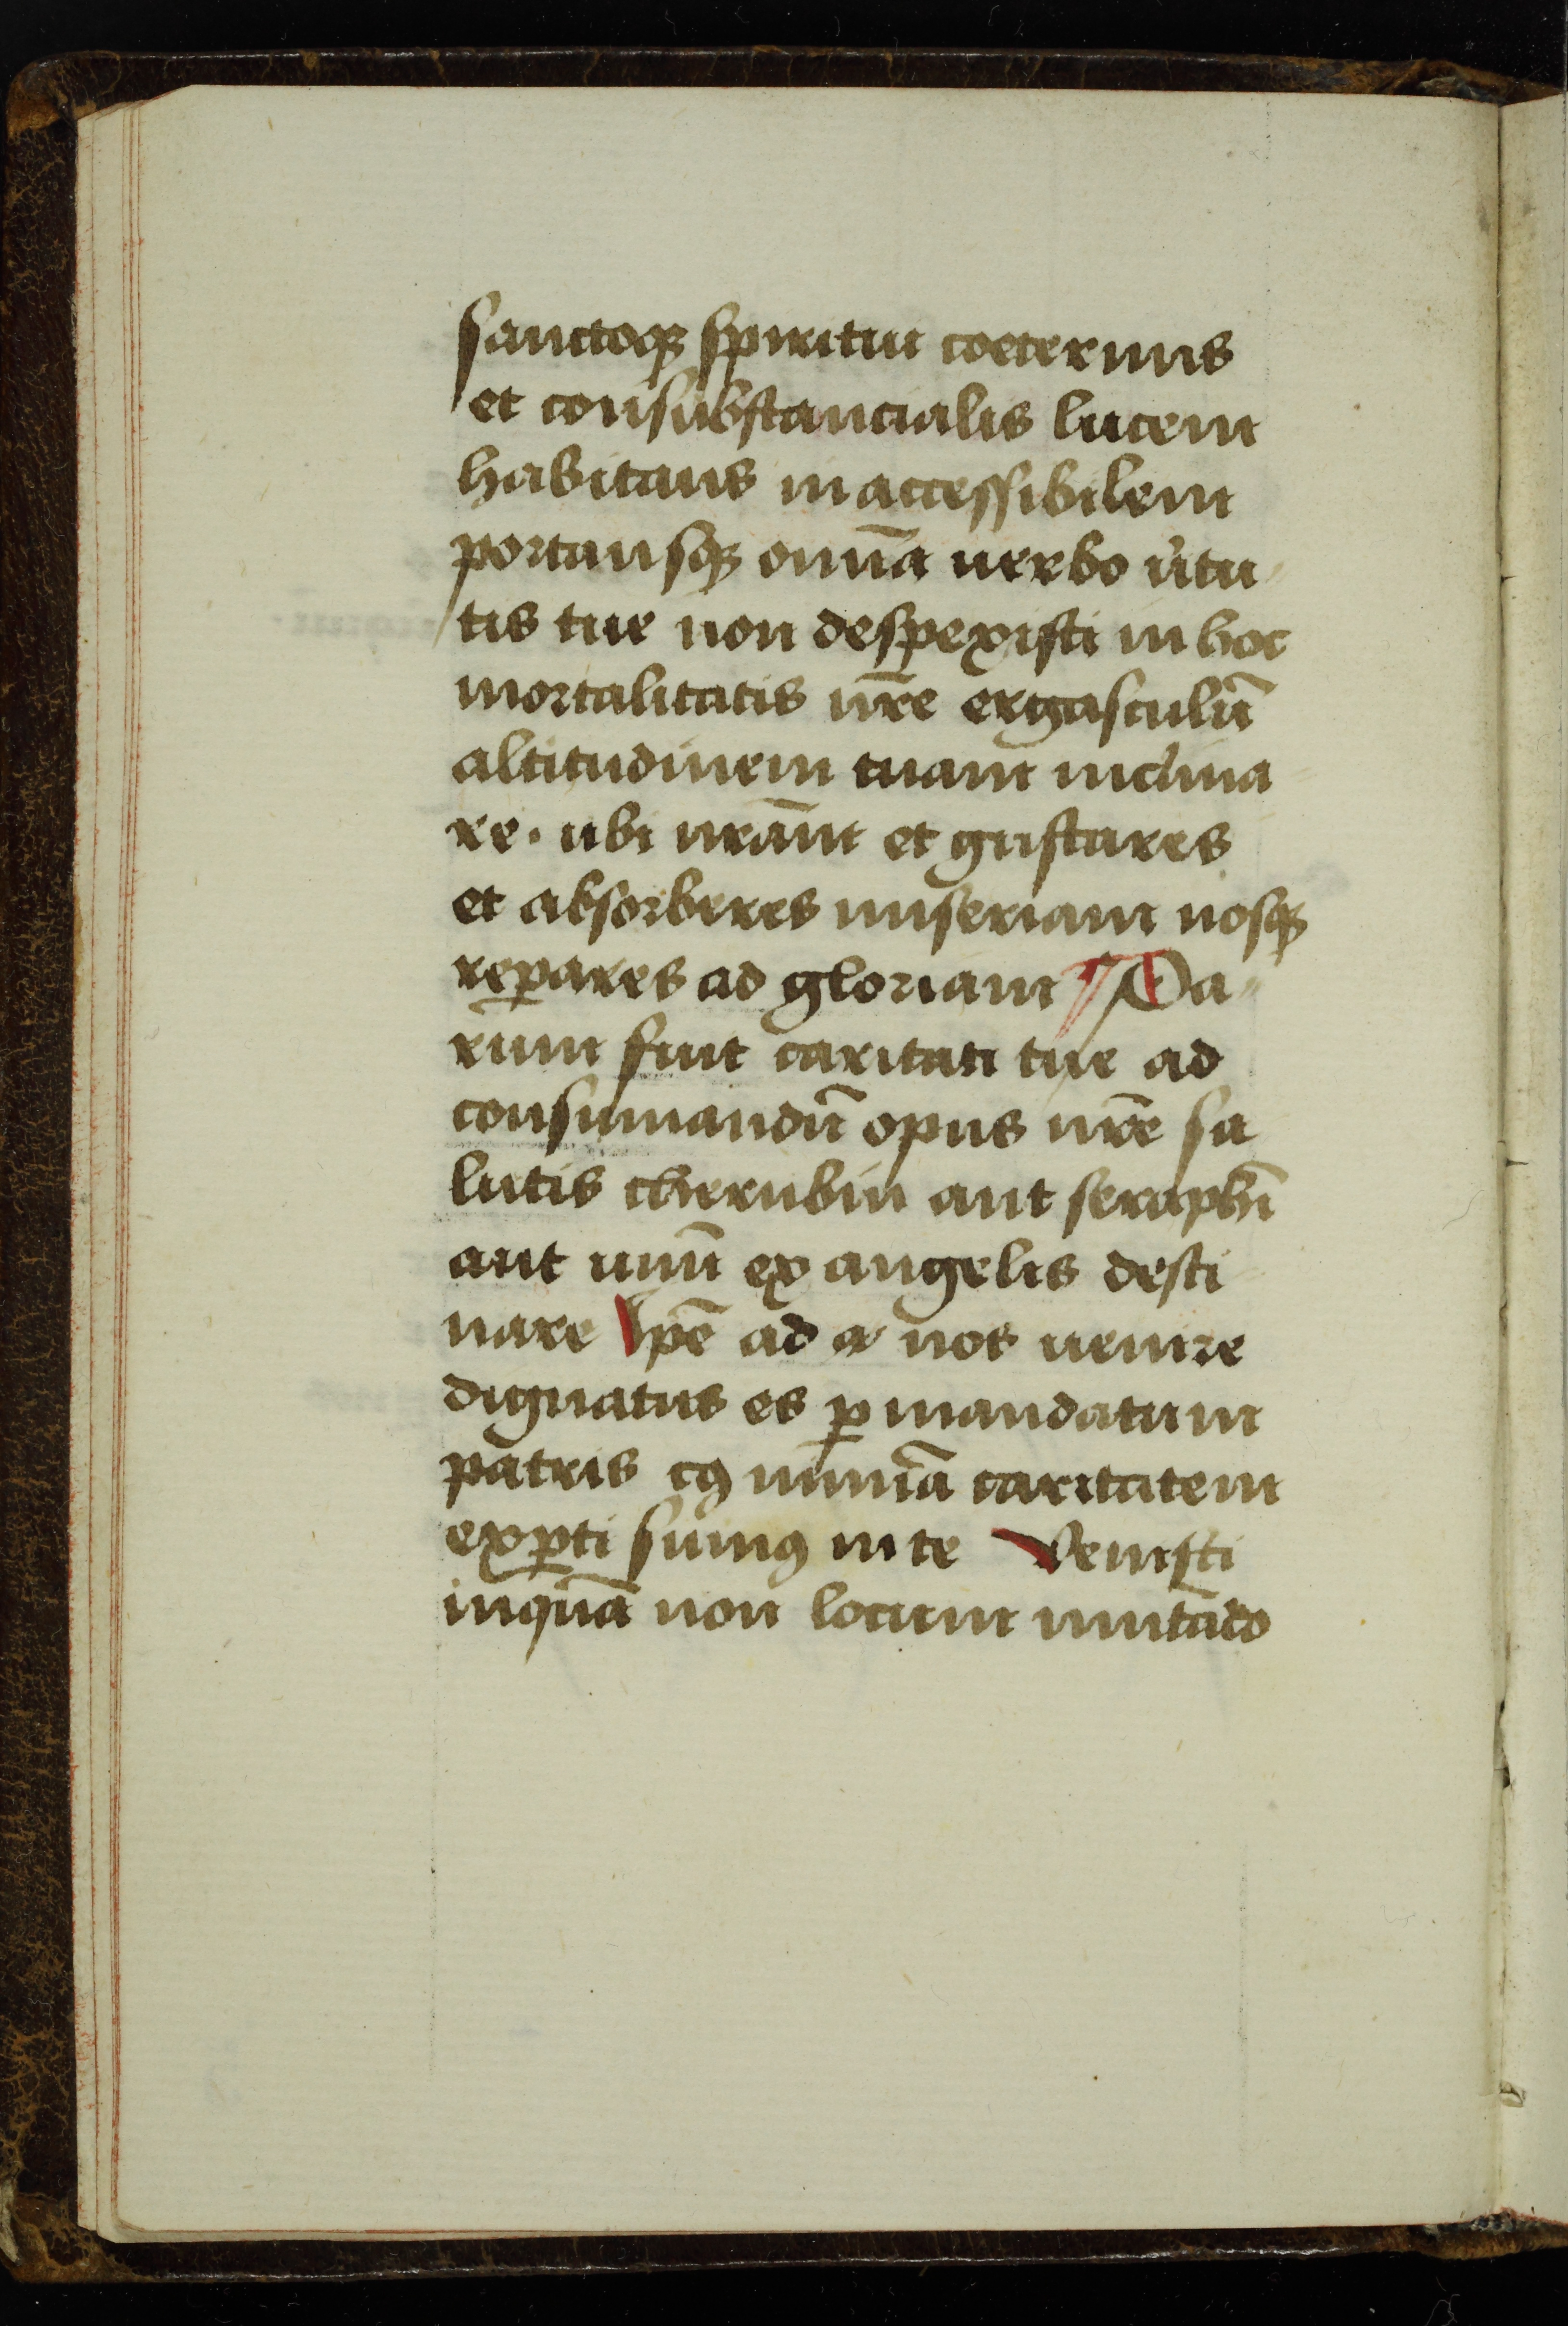 sanctoqꝫ spiritui coeternus
et consubstancialis lucem
habitans inaccessibilem
portansqꝫ omīa uerbo uͥtu
tis tue non despexisti in hoc
mortalitatis nr̄e ergasculū
altitudinem tuam inclina
re. ubi nr̄am et gustares
et absorberes miseriam nosqꝫ
repares ad gloriam ¶ Pa
rum fuit caritati tue ad
consumandū opus nr̄e sa
lutis cherubin aut seraphī
aut unū ex angelis desti
nare Ipē ad a nos uenire
dignatus es ꝑ mandatum
patris cꝰ nimiā caritatem
exꝑti sumꝰ in te Venisti
inquā non locum mutādo